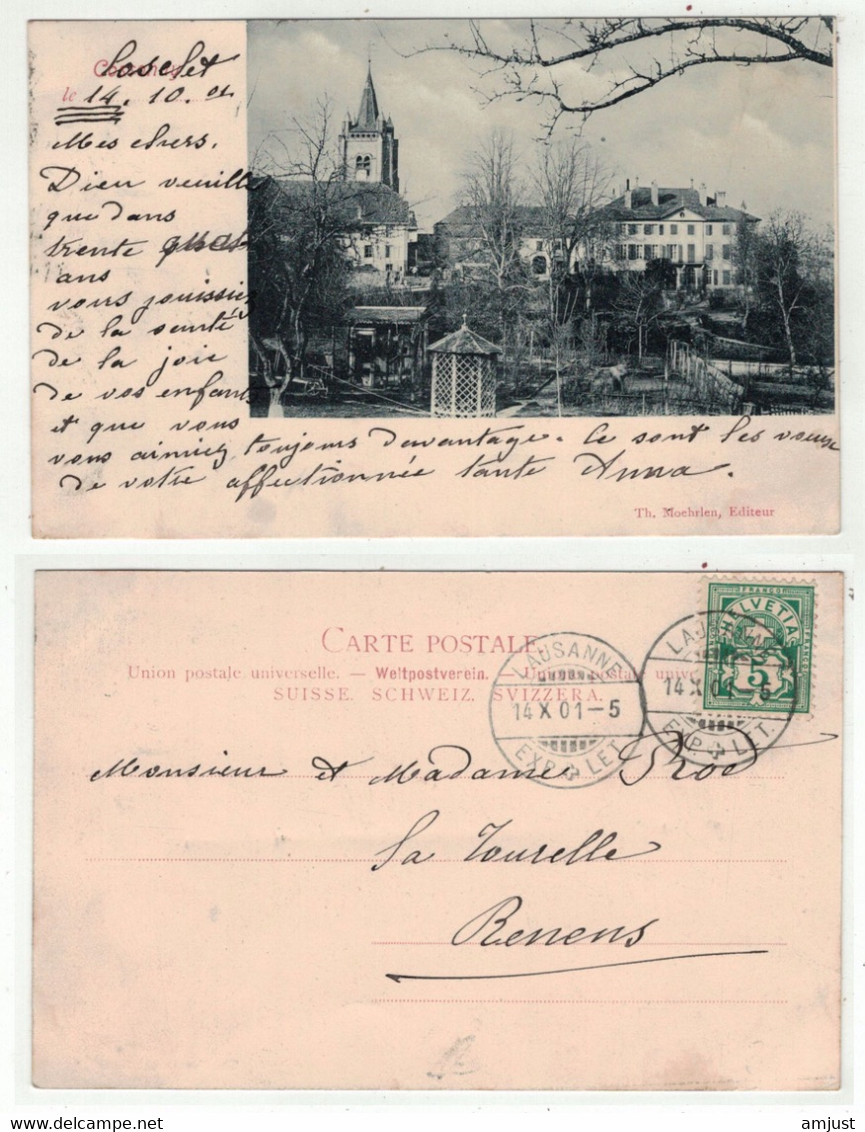 le 14. 10. 01
Mes chers.
Dieu veuille
que dans
trente
ans
vous jouissiez
de la santé
de la joie
de vos enfants
et que vous
vous aimiez toujours davantage. Ce sont les voeux
de votre affectionnée tante Anna.
Th. Moehrlen, Editeur
CARTE POSTALE.
Union postale universelle. — Weltpostverein. — Unione postale univer
SUISSE. SCHWEIZ. SVIZZERA.
LAUSANNE
14 X 01-5
EXP. LET.
LAUSANNE
14 X 01-5
EXP. LET.
FRANCO
HELVETIA
5
Monsieur et Madame Roo
La Tourelle
Renens
amjust